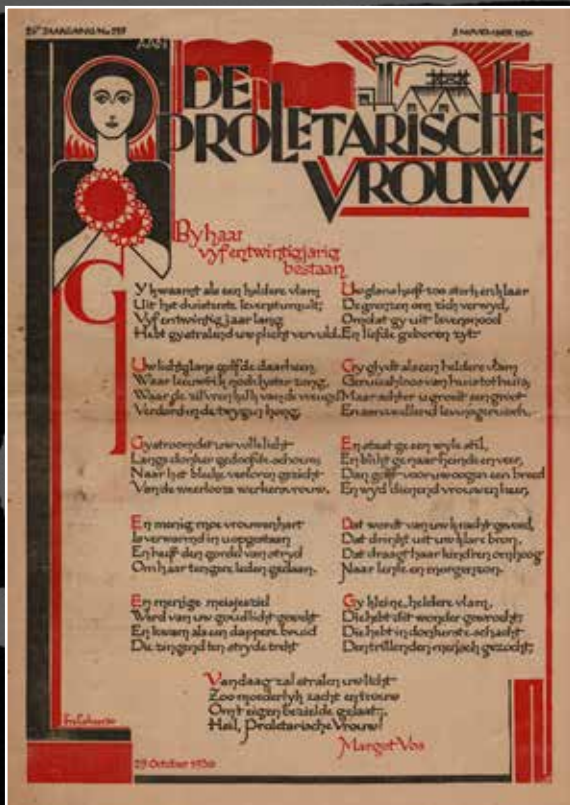 AAN
DE
PROLETARISCHE
VROUW
By haar
vyfentwintigjarig
bestaan
Gy kwaamt als een heldere vlam
Uit het duisterste levenstumult;
Vyfentwintig jaar lang
Hebt gy stralend uw plicht vervuld.
Uw lichtglans golfde daarheen,
Waar leeuwrik noch lyster zong,
Waar de zilvren kelk van de vreugd
Verdord in de twygen hong.
Gy stroomdet uw volle licht
Langs donker gedoofde schouw,
Naar het bleeke verloren gezicht
Van de weerlooze werkersvrouw.
En menig moe vrouwenhart
Is verwarmd in u opgestaan
En heeft den gordel van stryd
Om haar tengere leden gedaan.
En menige meisjesziel
Werd van uw goudlicht gewekt
En kwam als een dappere bruid
Die zingend ten stryde trekt
Uw glans heeft zoo sterk en klaar
De grenzen om zich verwyd,
Omdat gy uit levensnood
En liefde geboren zyt.
Gy glydt als een heldere vlam
Geruischloos van huis tot huis,
Maar achter u groeit een groot
En aanzwellend levensgeruisch.
En staat ge een wyle stil,
En blikt ge naar heinde en veer,
Dan golft voor uw oogen een breed
En wyd dienend vrouwenheer,
Dat wordt van uw kracht gevoed,
Dat drinkt uit uw klare bron,
Dat draagt haar kindren omhoog
Naar lente en morgenzon.
Gy kleine, heldere vlam,
Die hebt dit wonder gewrocht;
Die hebt in donkerste schacht
Den trillenden mensch gezocht;
Vandaag zal stralen uw licht
Zoo moederlyk zacht en trouw
Om 't eigen bezielde gelaat;
Heil, Proletarische Vrouw!
Margot Vos
29 October 1930